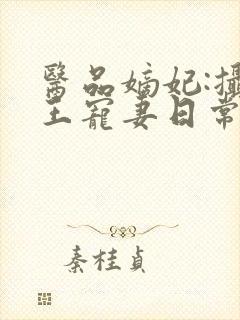 醫品嫡妃:攝
王寵妻日常
秦桂貞